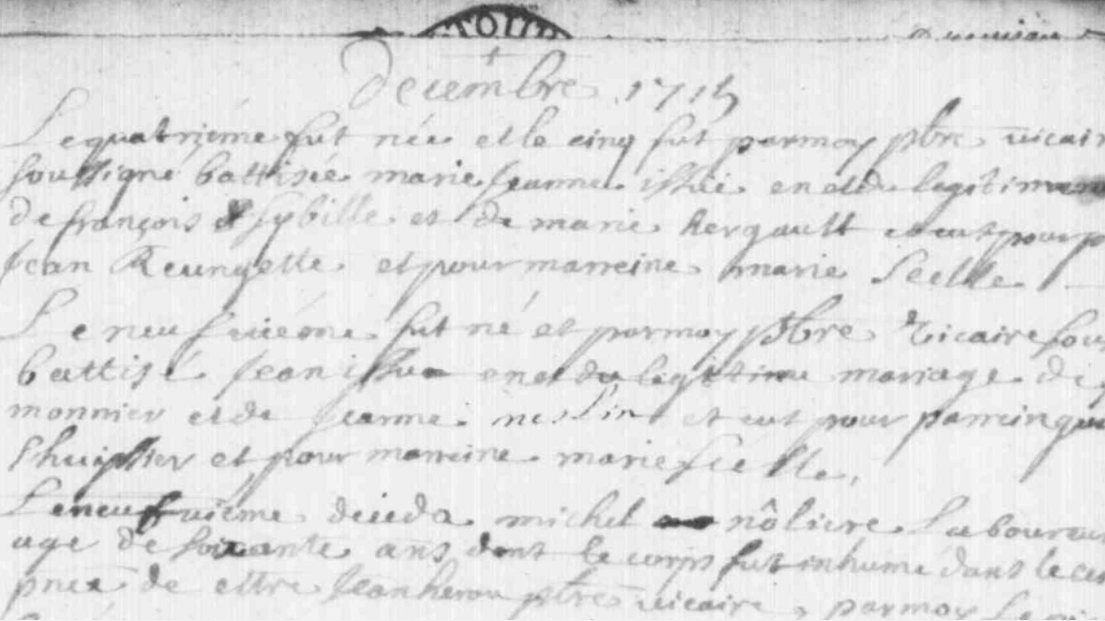 TOUR
Decembre 1715
Le quatriéme fut née et le cinq fut par moy pbre vicair
soussigné battisée marie jeanne issüe en et du legitime
de françois Sybille et de marie hergault et eut pour p
Jean et pour marreine marie Seelle
Le neufviéme fut né et par moy pbre vicaire sou
battisé jean issu en et du legitime mariage de
monnier et de jeanne et eut pour parrein
et pour marreine marie
Le neufviéme deceda michel nôliere Laboureur
age de soixante ans dont le corps fut inhumé dans le ce
pnce de Mtre Jean herou pbre vicaire, par moy